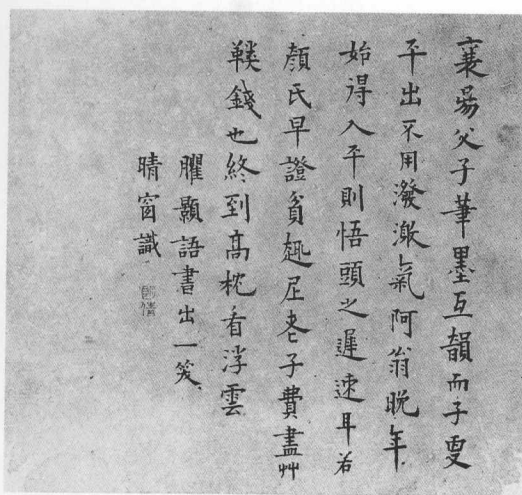 襄昜父子筆墨互韻而子更
平出不用潑激氣阿翁晚年
始得入平則悟頭之遲速耳若
顏氏早證貧趣尼老子費盡艸
鞵錢也終到高枕看浮雲
臞顚語書出一笑
晴窗識